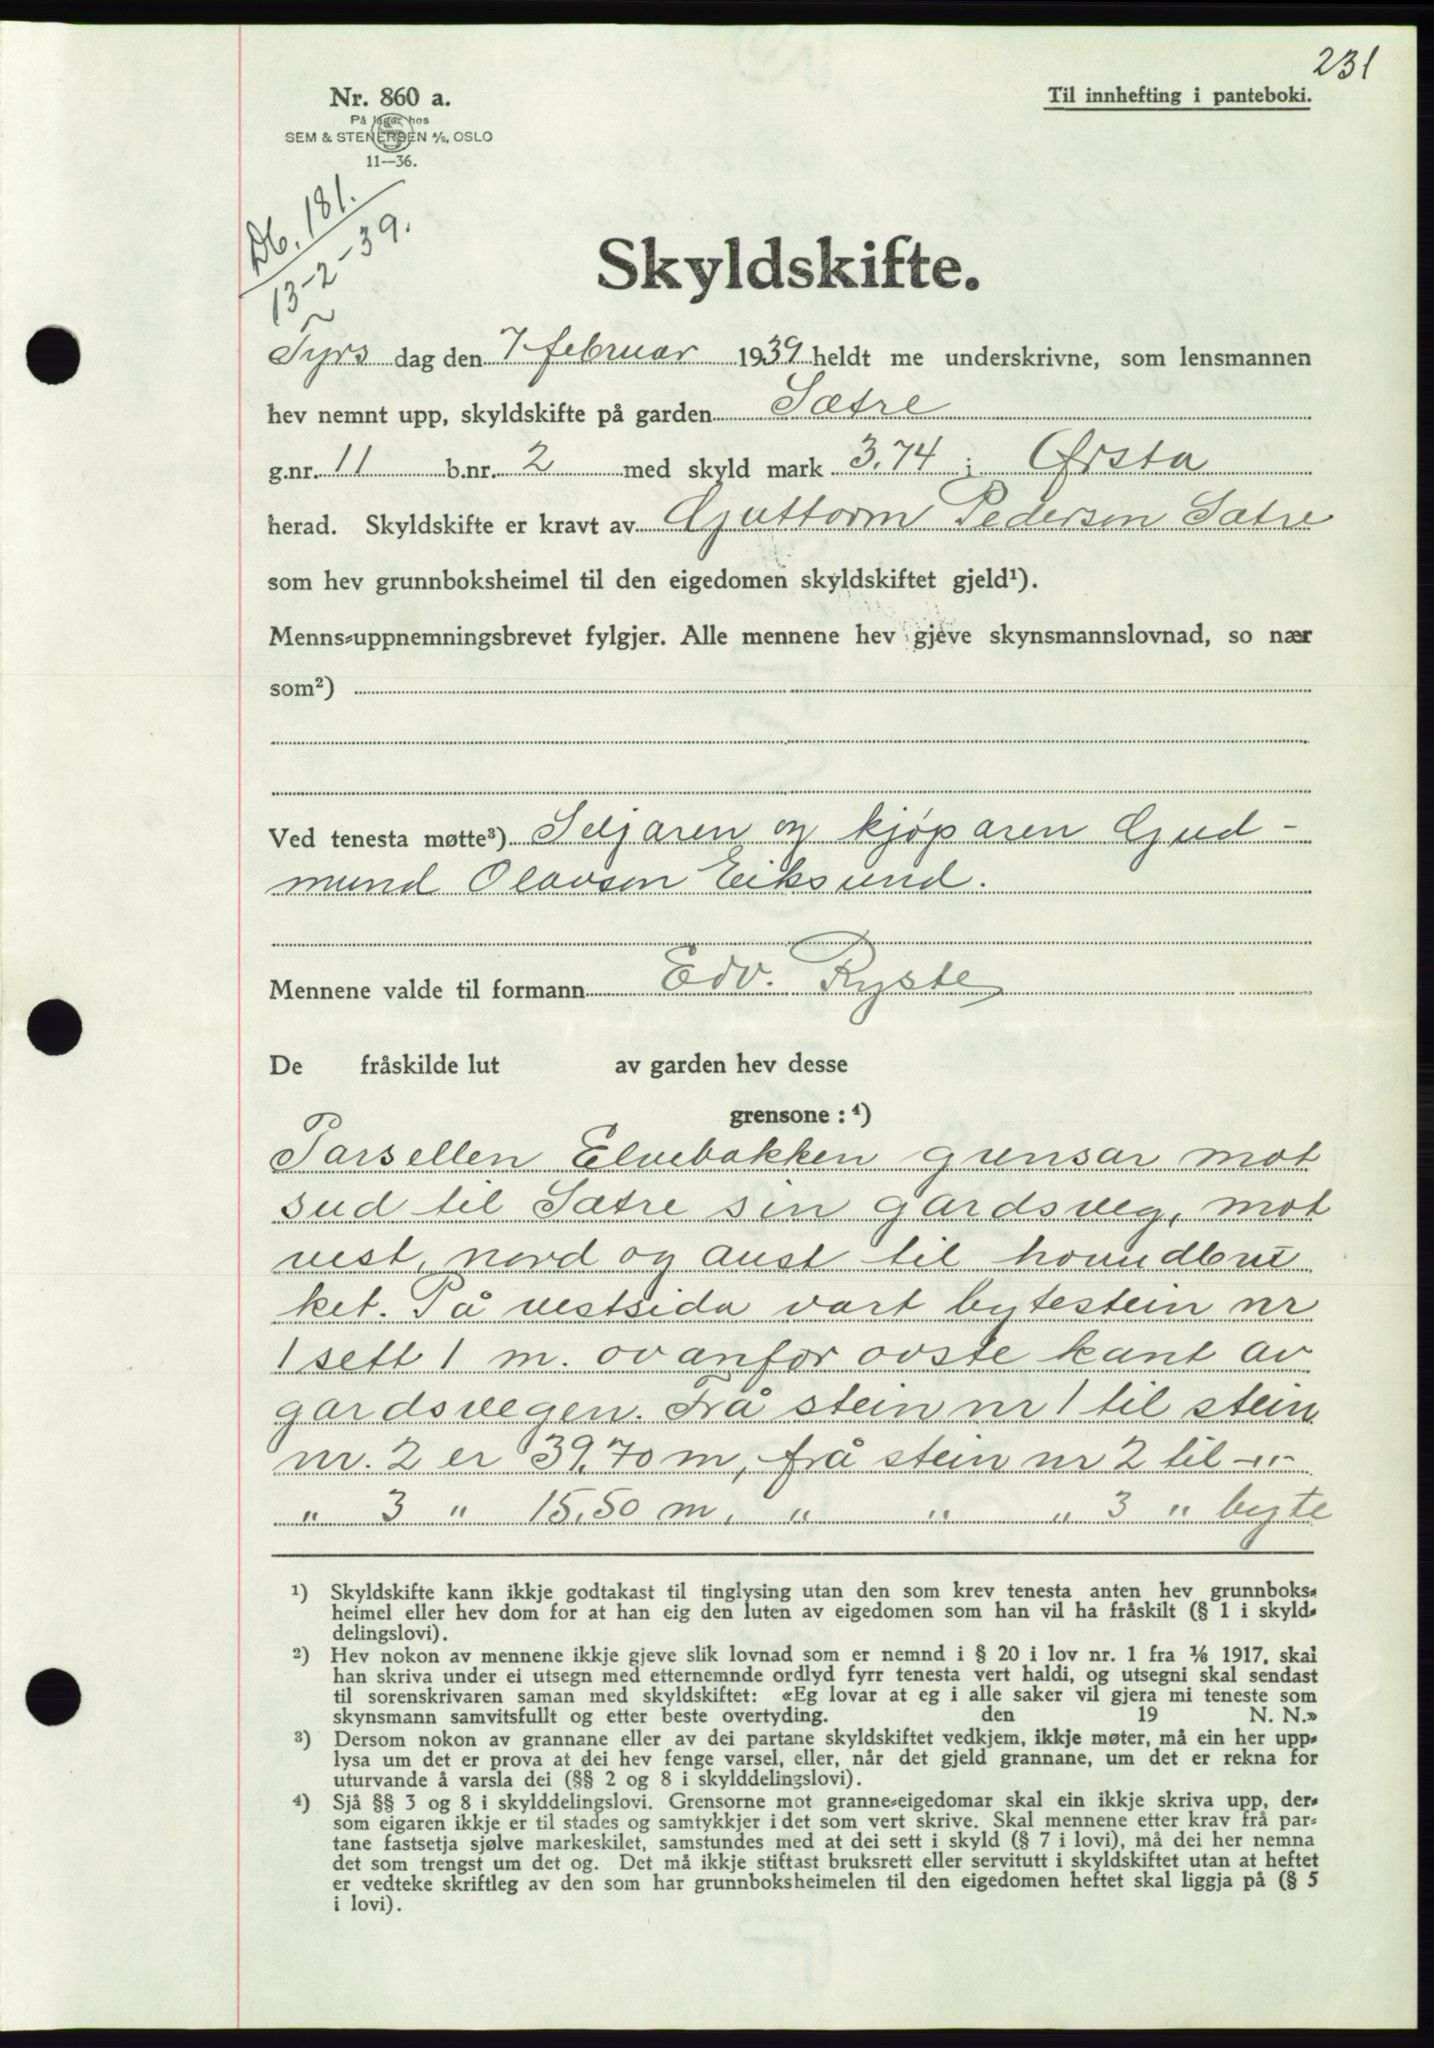 231
Nr. 860 a.
På lager hos
SEM & STENERSEN A/S, OSLO
11—36.
Til innhefting i panteboki.
Db. 181.
13-2-39.
Skyldskifte.
Tyrs dag den 7 februar 1939 heldt me underskrivne, som lensmannen
hev nemnt upp, skyldskifte på garden Sætre
g.nr. 11 b.nr. 2 med skyld mark 3,74 i Ørsta
herad. Skyldskifte er kravt av Guttorm Pederson Sætre
som hev grunnboksheimel til den eigedomen skyldskiftet gjeld¹).
Menns-uppnemningsbrevet fylgjer. Alle mennene hev gjeve skynsmannslovnad, so nær
som²)
Ved tenesta møtte³) Seljaren og kjøparen Gud-
mund Olavson Eiksund.
Mennene valde til formann Edv. Ryste
De fråskilde lut av garden hev desse
grensone: ⁴)
Parsellen Elvebakken grensar mot
sud til Sætre sin gardsveg, mot
vest, nord og aust til hovudbru
ket. På vestsida vart bytestein nr
1 sett 1 m. ovanfor øvste kant av
gardsvegen. Frå stein nr 1 til stein
nr. 2 er 39,70 m, frå stein nr 2 til -"-
" 3 " 15,50 m, " " " 3 " byte
¹) Skyldskifte kann ikkje godtakast til tinglysing utan den som krev tenesta anten hev grunnboks-
heimel eller hev dom for at han eig den luten av eigedomen som han vil ha fråskilt (§ 1 i skyld-
delingslovi).
²) Hev nokon av mennene ikkje gjeve slik lovnad som er nemnd i § 20 i lov nr. 1 fra 1/6 1917, skal
han skriva under ei utsegn med etternemnde ordlyd fyrr tenesta vert haldi, og utsegni skal sendast
til sorenskrivaren saman med skyldskiftet: «Eg lovar at eg i alle saker vil gjera mi teneste som
skynsmann samvitsfullt og etter beste overtyding. den 19 N. N.»
³) Dersom nokon av grannane eller av dei partane skyldskiftet vedkjem, ikkje møter, må ein her upp-
lysa um det er prova at dei hev fenge varsel, eller, når det gjeld grannane, um det er rekna for
uturvande å varsla dei (§§ 2 og 8 i skylddelingslovi).
⁴) Sjå §§ 3 og 8 i skylddelingslovi. Grensorne mot granne-eigedomar skal ein ikkje skriva upp, der-
som eigaren ikkje er til stades og samtykkjer i det som vert skrive. Skal mennene etter krav frå par-
tane fastsetja sjølve markeskilet, samstundes med at dei sett i skyld (§ 7 i lovi), må dei her nemna
det som trengst um det og. Det må ikkje stiftast bruksrett eller servitutt i skyldskiftet utan at heftet
er vedteke skriftleg av den som har grunnboksheimelen til den eigedomen heftet skal liggja på (§ 5
i lovi).